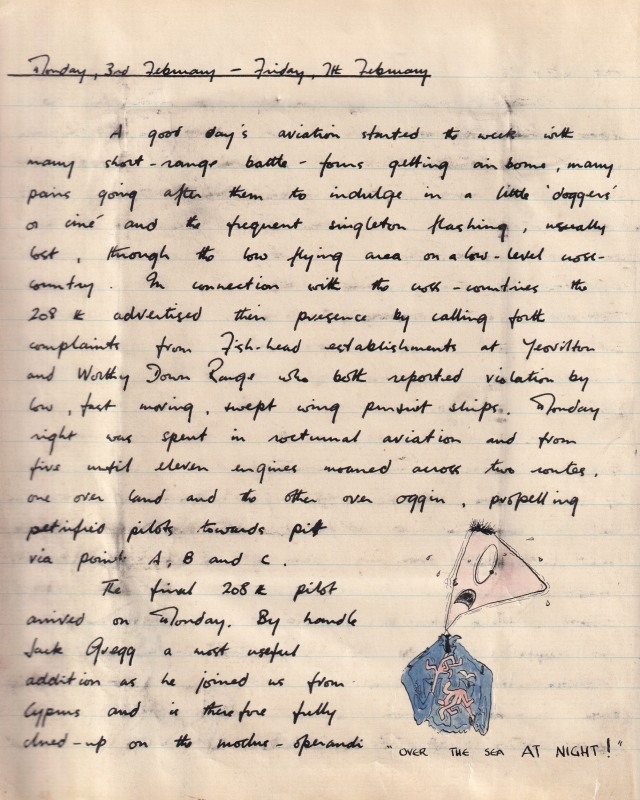 Monday, 3rd February – Friday, 7th February
A good day's aviation started the week with
many short-range battle-forms getting airborne, many
pairs going after them to indulge in a little 'doggers'
or ciné and the frequent singleton flashing, usually
lost, through the low flying area on a low-level cross-
country. In connection with the cross-countries the
208 k advertised their presence by calling forth
complaints from Fish-head establishments at Yeovilton
and Worthy Down Range who both reported violation by
low, fast moving, swept wing pursuit ships. Monday
night was spent in nocturnal aviation and from
five until eleven engines moaned across two routes,
one over land and the other over oggin, propelling
petrified pilots towards piff
via points A, B and C.
The final 208 k pilot
arrived on Monday. By handle
Jack Gregg a most useful
addition as he joined us from
Cyprus and is therefore fully
clued-up on the modus-operandi
"OVER THE SEA AT NIGHT!"